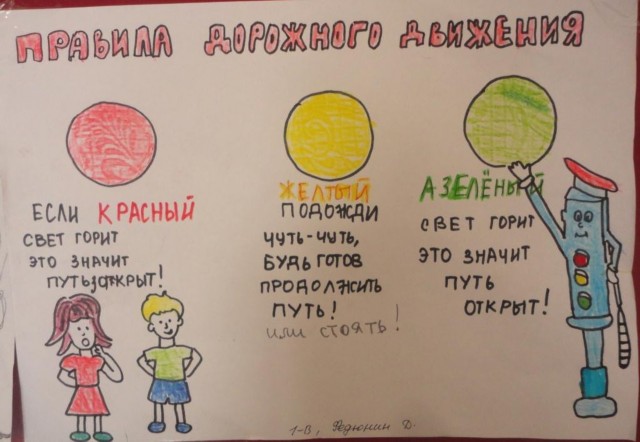 ПРАВИЛА ДОРОЖНОГО ДВИЖЕНИЯ
ЕСЛИ КРАСНЫЙ
СВЕТ ГОРИТ
ЭТО ЗНАЧИТ
ПУТЬ
ЖЕЛТЫЙ
ПОДОЖДИ
ЧУТЬ-ЧУТЬ,
БУДЬ ГОТОВ
ПРОДОЛЖИТЬ
ПУТЬ!
ИЛИ СТОЯТЬ!
АЗЕЛЁНЫЙ
СВЕТ ГОРИТ
ЭТО ЗНАЧИТ
ПУТЬ
ОТКРЫТ!
1-В, Федюнин Д.